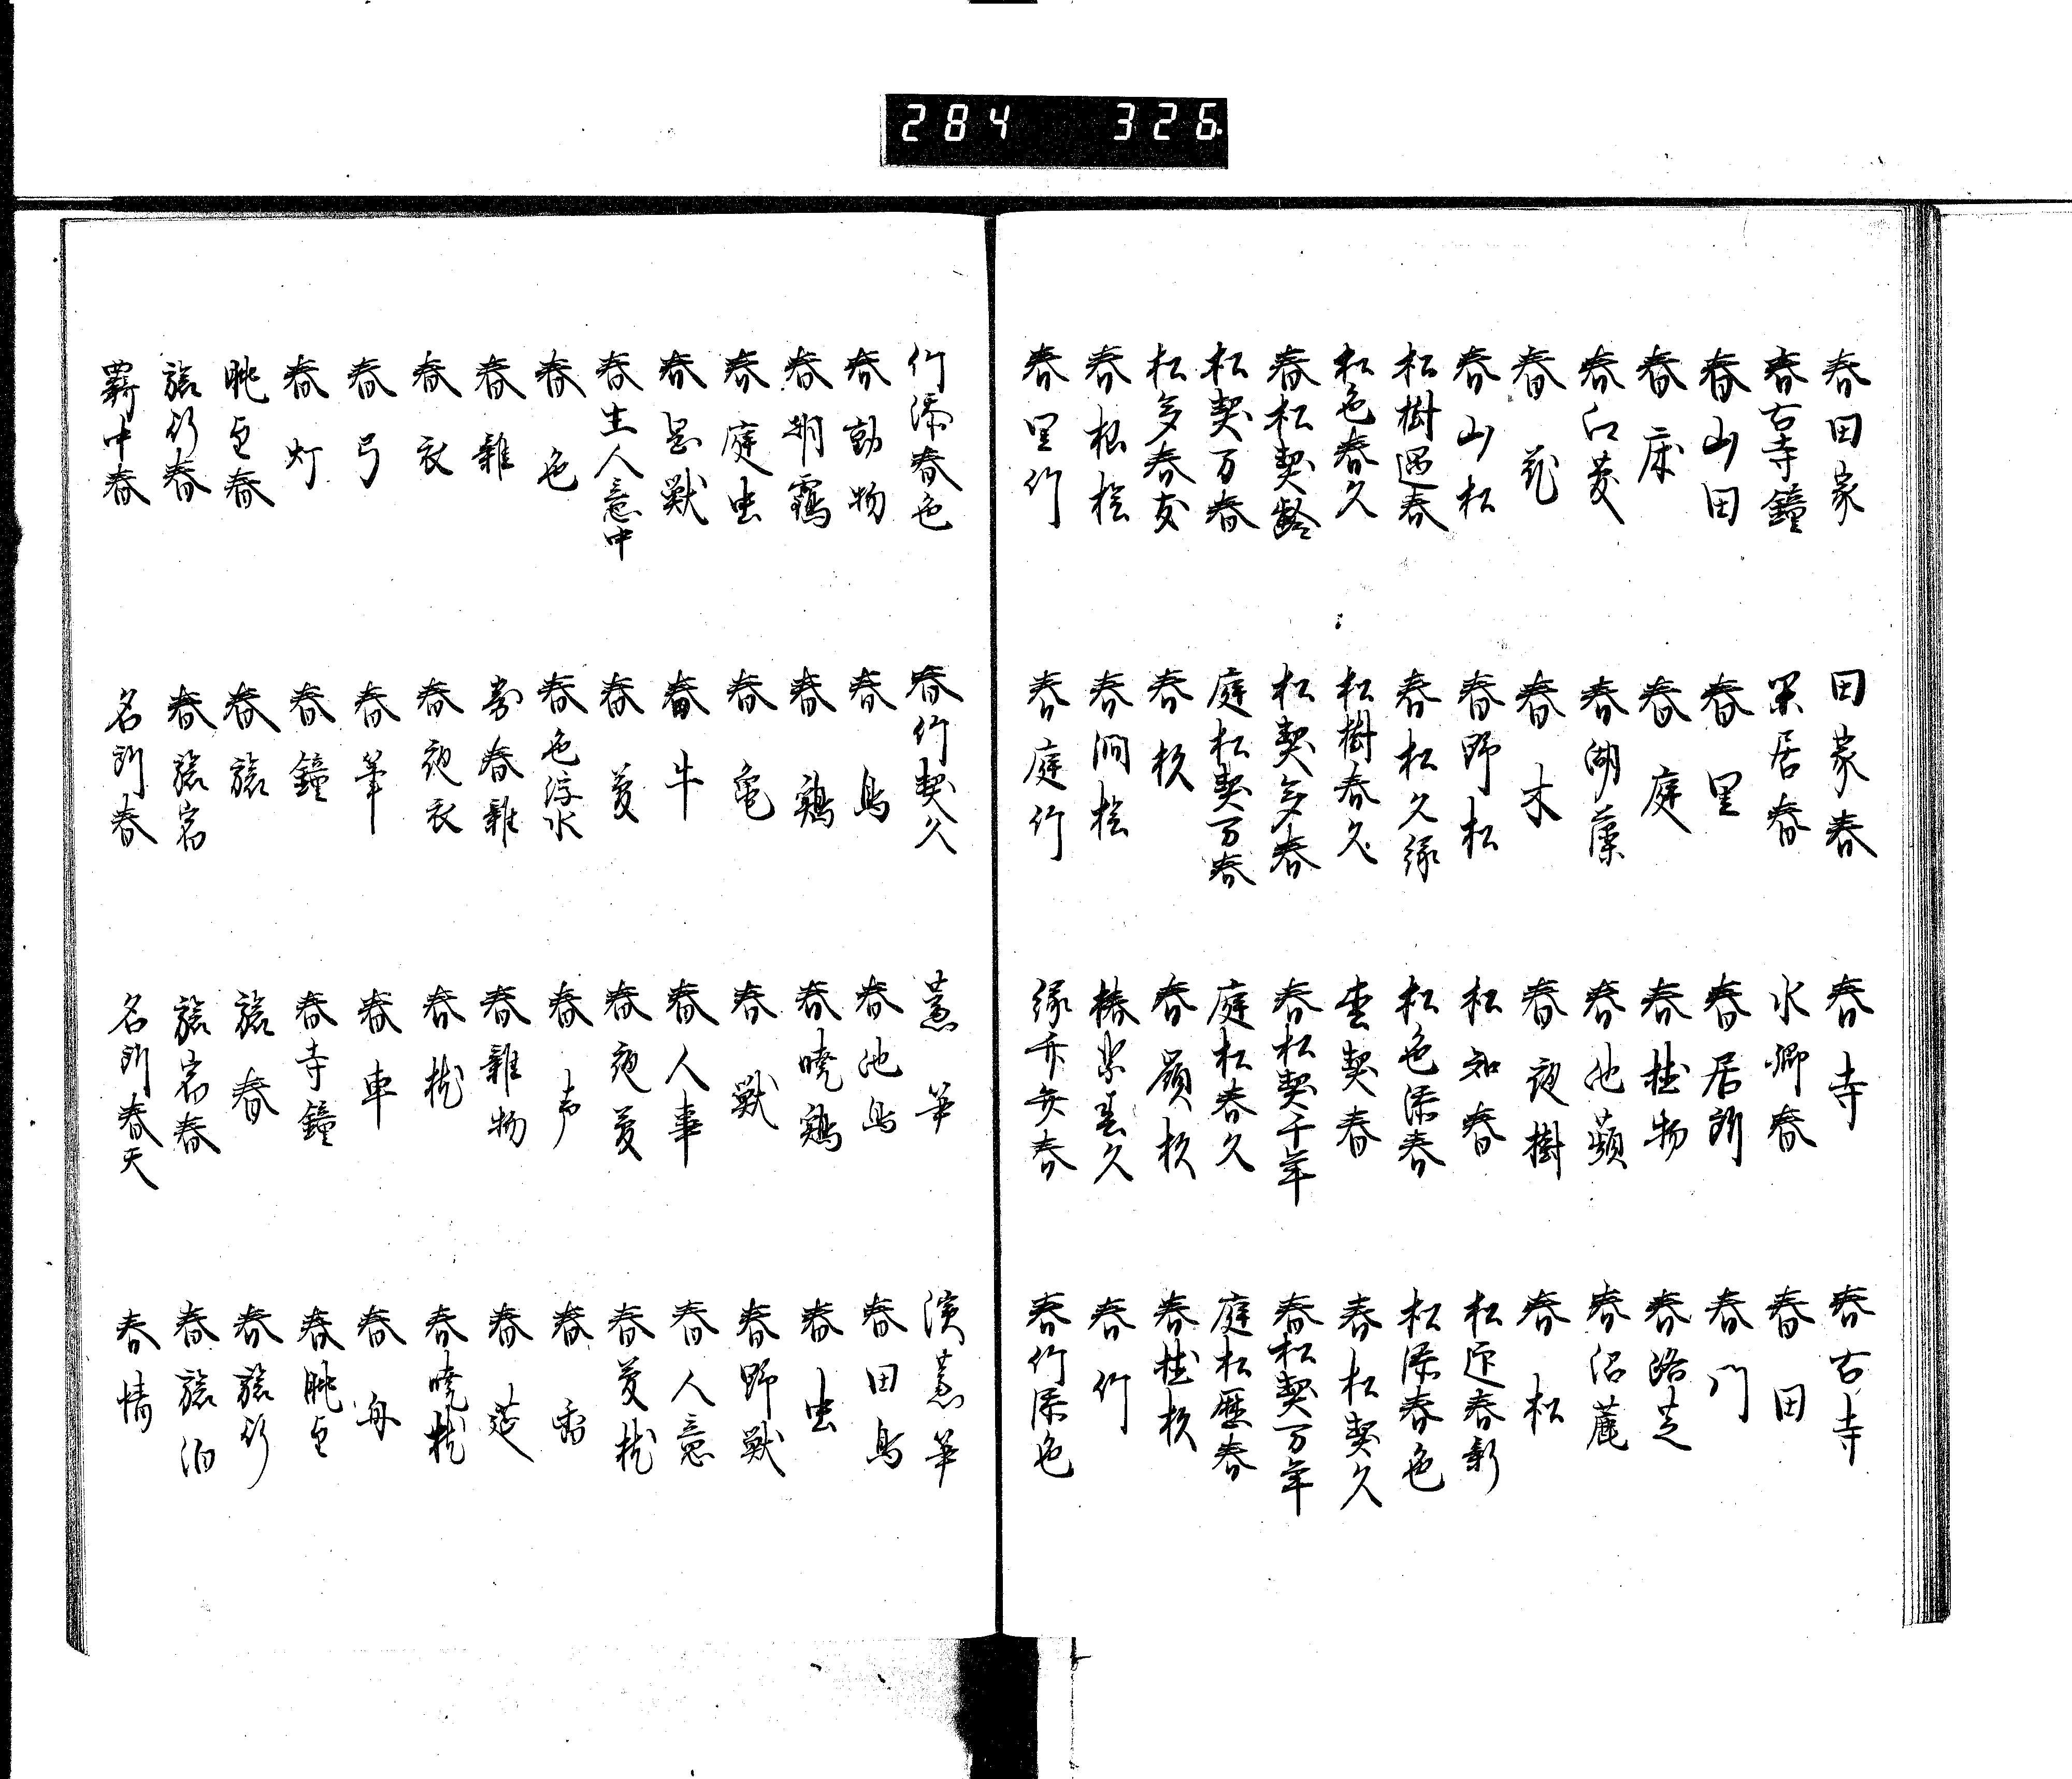 284 326
春田家 田家春 春寺 春古寺
春古寺鐘 閑居春 水郷春 春田
春山田 春里 春居所 春門
春床 春庭 春植物 春路芝
春江菱 春湖藻 春池蘋 春沼
春花 春木 春夜樹 春松
春山松 春野松 松知春 松迎春新
松樹遇春 春松久緑 松色添春 松添春色
松色春久 松樹春久 枩契春 春松契久
春松契齢 松契多春 春松契千年 春松契万年
松契万春 庭松契万春 庭松春久 庭松歴春
松多春友 春杉 春嶺杉 春杉
春根桧 春澗桧 椿葉春久 春竹
春里竹 春庭竹 緑竹年春 春竹添色
竹添春色 春竹契久
春動物 春鳥 春池鳥 春田鳥
春朝鶴 春鶏 春暁鶏 春虫
春庭虫 春亀 春獣 春野獣
春獣 春牛 春人事 春人意
春生人意中 春夢 春夜夢 春夢枕
春色 春色浮水 春声 春香
春雑 寄春雑 春雑物 春莚
春衣 春夜衣 春枕 春暁枕
春弓 春筆 春車 春舟
春灯 春鐘 春寺鐘 春眺望
眺望春 春旅 旅春 春旅行
旅行春 春旅宿 旅宿春 春旅泊
羇中春 名所春 名所春天 春情